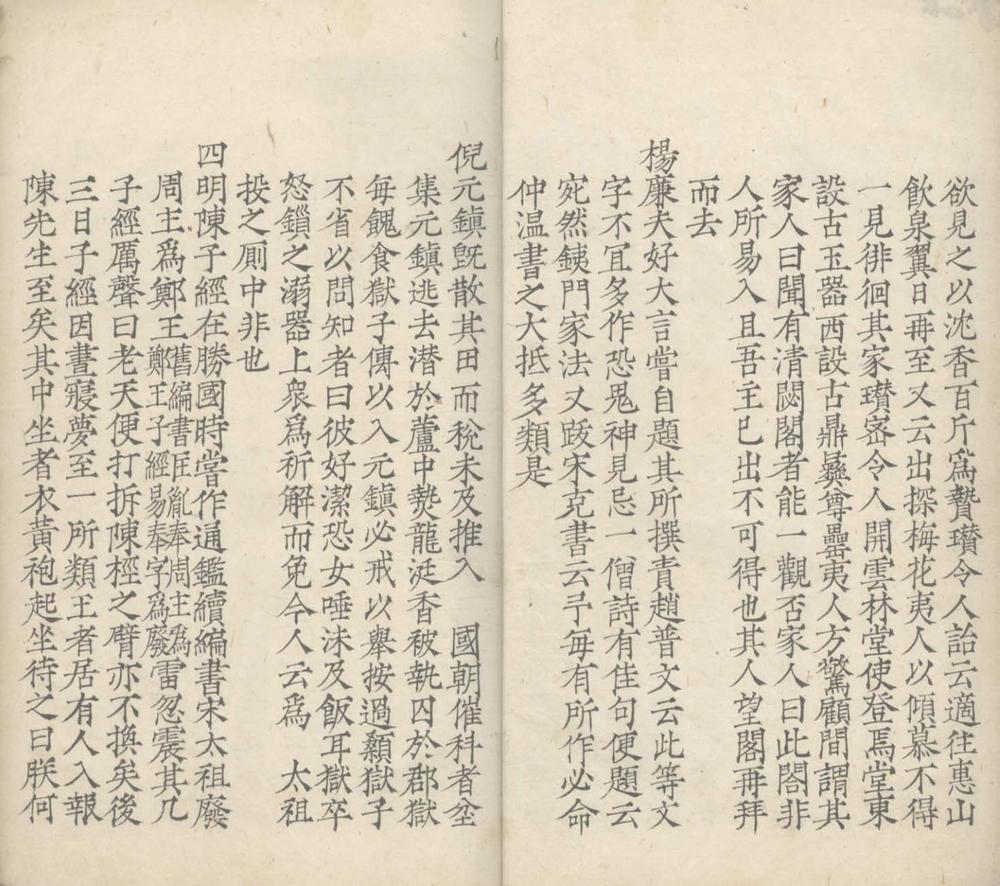 欲見之以沈香百斤爲贄瓚令人詒云適往惠山
飲泉翼日再至又云出探梅花夷人以傾慕不得
一見徘徊其家瓚密令人開雲林堂使登焉堂東
設古玉器西設古鼎彝尊罍夷人方驚顧間謂其
家人曰聞有清閟閣者能一觀否家人曰此閣非
人所易入且吾主已出不可得也其人望閣再拜
而去
楊廉夫好大言嘗自題其所撰責趙普文云此等文
字不宜多作恐鬼神見忌一僧詩有佳句便題云
宛然銕門家法又䟦宋克書云予每有所作必命
仲温書之大抵多類是
倪元鎮旣散其田而稅未及推入　國朝催科者坌
集元鎮逃去潜於蘆中爇龍涎香被執囚於郡獄
每餽食獄子傳以入元鎮必戒以舉按過顙獄子
不省以問知者曰彼好潔恐女唾沫及飯耳獄卒
怒鎻之溺器上衆爲祈解而免今人云爲　太祖
投之厠中非也
四明陳子經在勝國時嘗作通鑑續編書宋太祖廢
周主爲鄭王舊編書匡胤奉周主爲鄭王子經易奉字爲廢雷忽震其几
子經厲聲曰老天便打拆陳桱之臂亦不換矣後
三日子經因晝寢夢至一所類王者居有人入報
陳先生至矣其中坐者衣黃袍起坐待之曰朕何